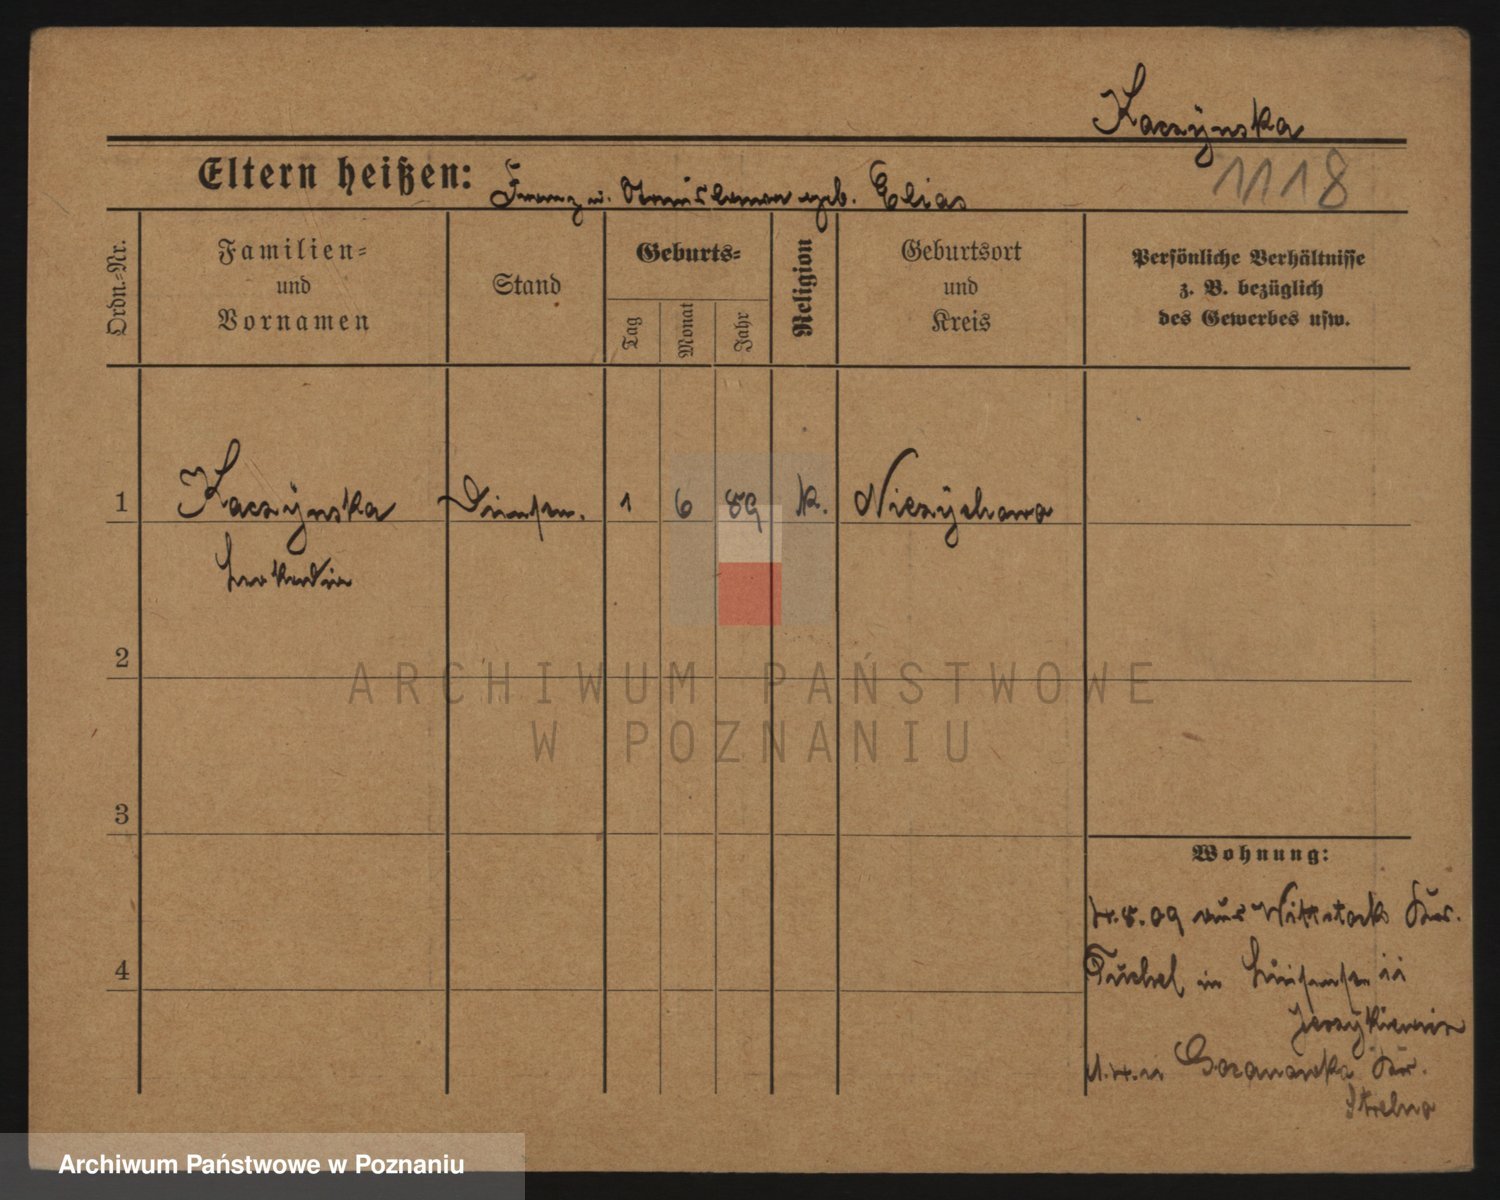 Kaczÿnska
1118
Eltern heißen: Franz u. Stanislawa geb. Elias
Ordn.=Nr.
Familien=
und
Vornamen
Stand
Geburts=
Tag
Monat
Jahr
Religion
Geburtsort
und
Kreis
Persönliche Verhältnisse
z. B. bezüglich
des Gewerbes usw.
1 Kaczÿnska 1 6 89 k. Niezÿchowo
2
3
4
Wohnung:
09 aus Wittstock Krs.
Tuchel in
in Krs.
Strelno
ARCHIWUM PAŃSTWOWE
W POZNANIU
Archiwum Państwowe w Poznaniu